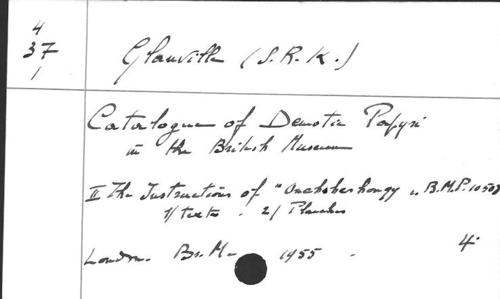 4
37
1
Glanville (S.R.K.)
Catalogue of Demotic Papyri
in the British Museum
II The Instructions of "Onchsheshonqy" B.M.P. 10508
1/ texte. 2/ Planches
London. Br. M. 1955. 4°